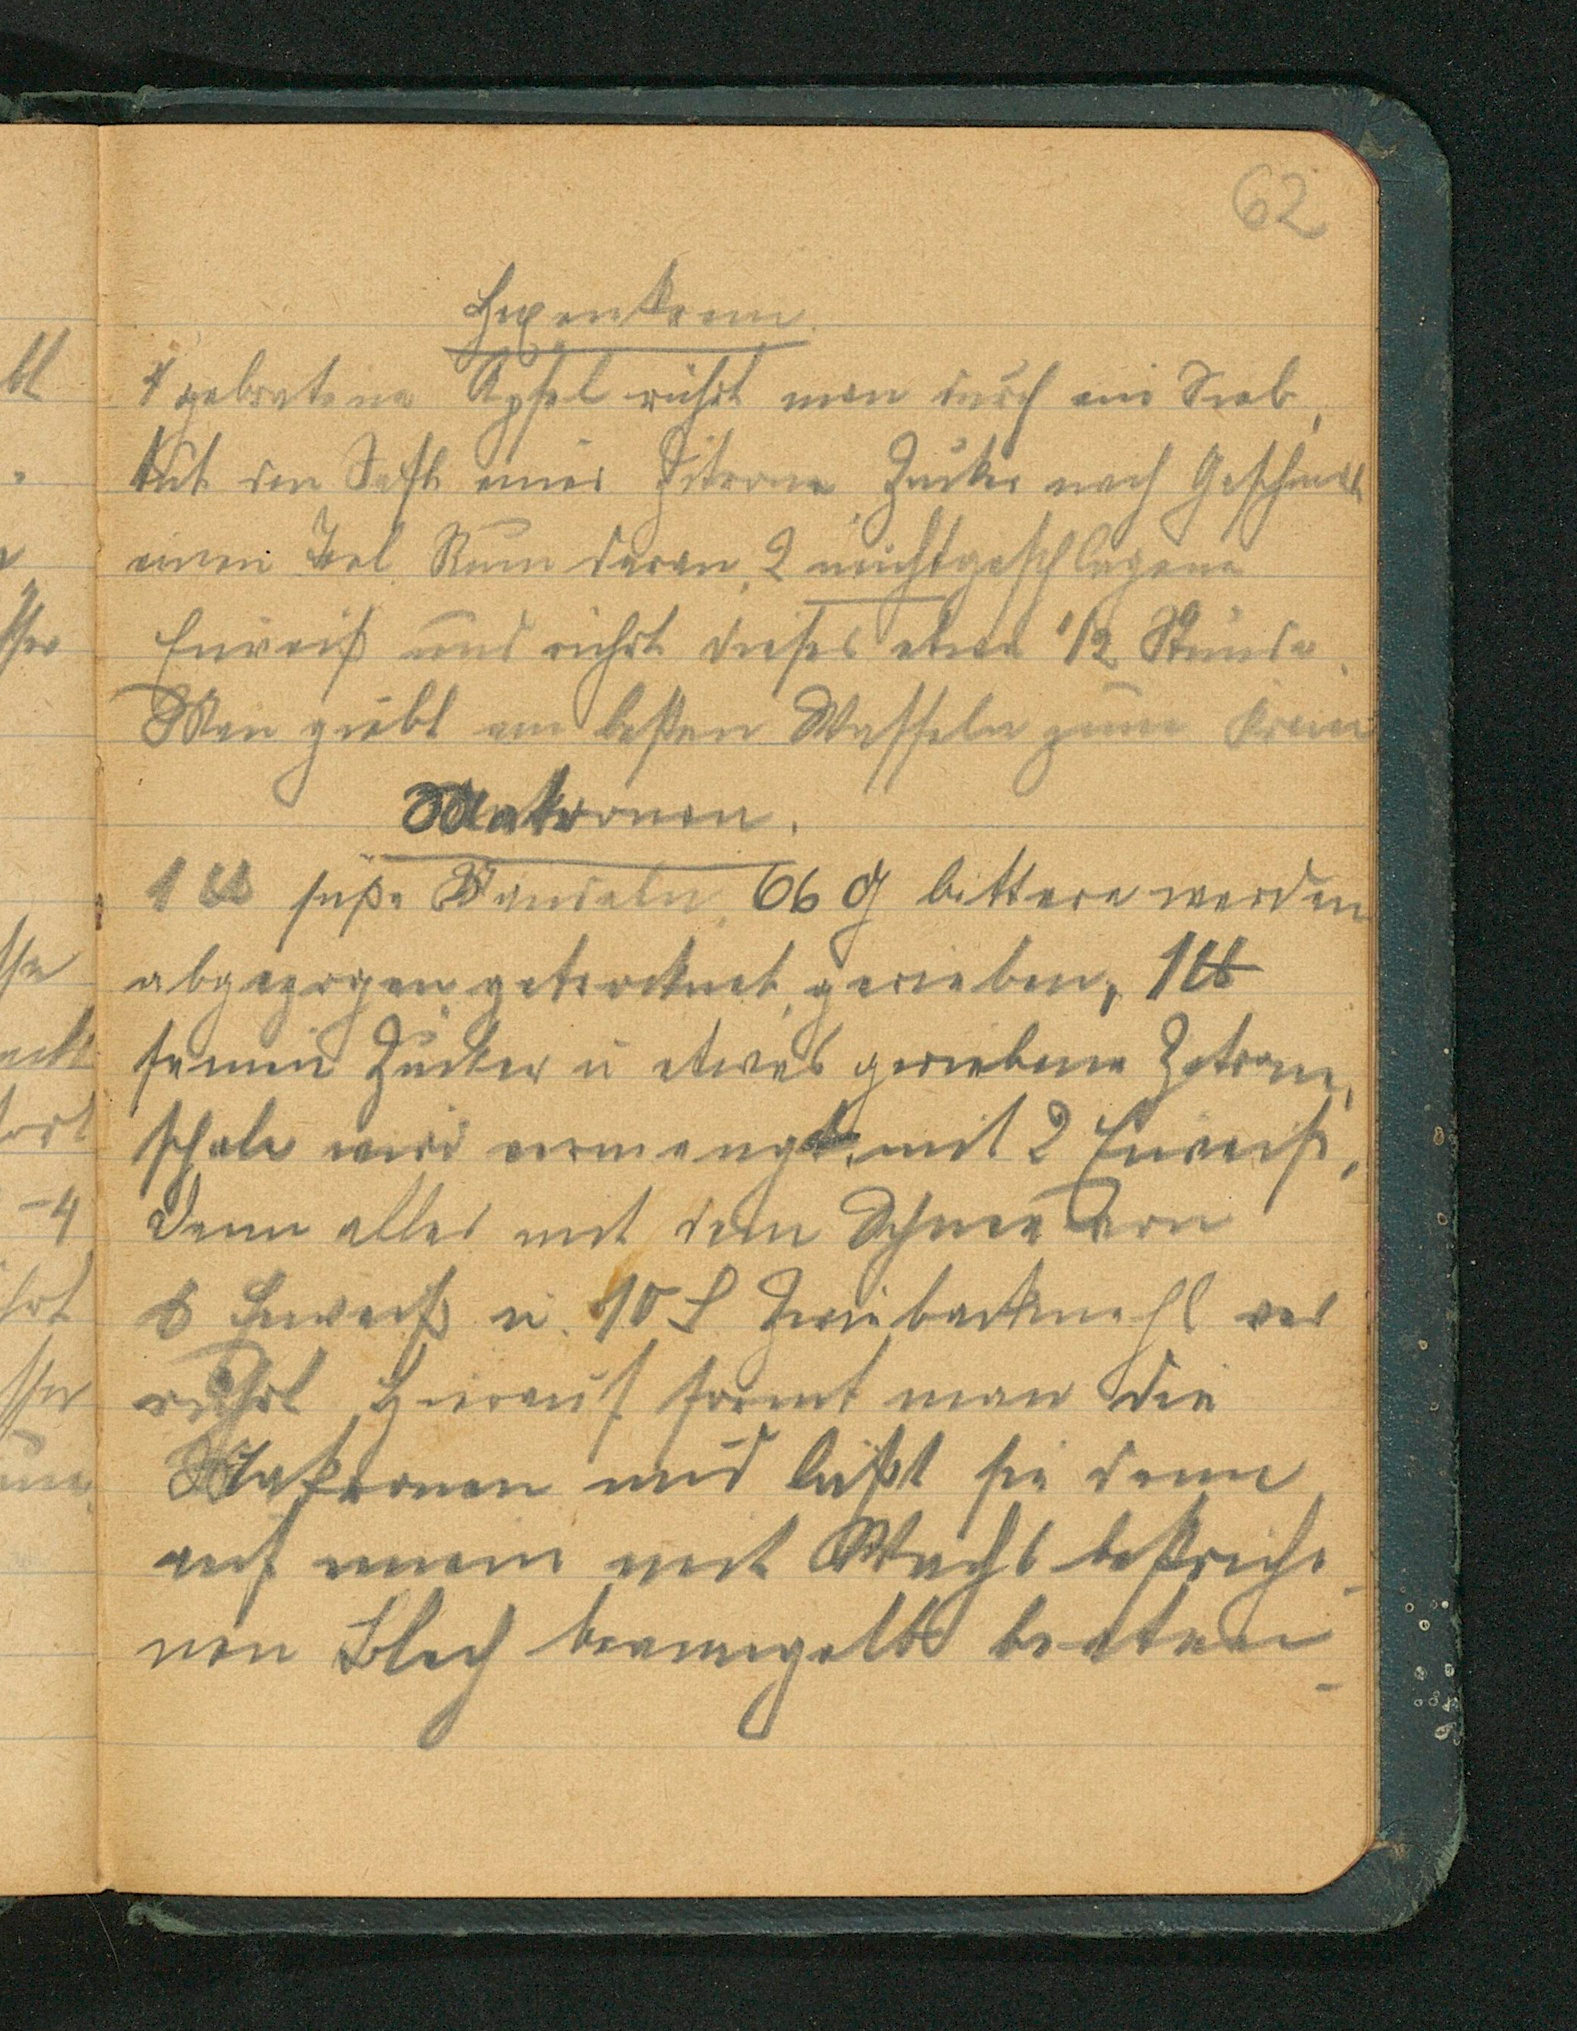 62
Hexenkrem.
4 gebratene Äpfel rührt man durch ein Sieb,
tut den Saft einer Zitrone, Zucker nach Geschmack
einen Teel. Rum daran, 2 nichtgeschlagene
Eiweiß und rührt dieses etwa 1/2 Stunde.
Man giebt am besten Waffeln zum Krem
Makronen.
1 ℔ süße Mandeln, 66 g bittere werden
abgezogen, getrocknet, gerieben, 1 ℔
feinen Zucker u etwas geriebene Zitronen,
schale wird vermengt, mit 2 Eiweiß,
dann alles mit dem Schnee von
6 Eiweiß u. 10 Zwiebackmehl ver
rührt. Hierauf formt man die
Makronen und läßt sie dann
auf einem mit Wachs bestriche-
nen Blech braungelb
bl
-4